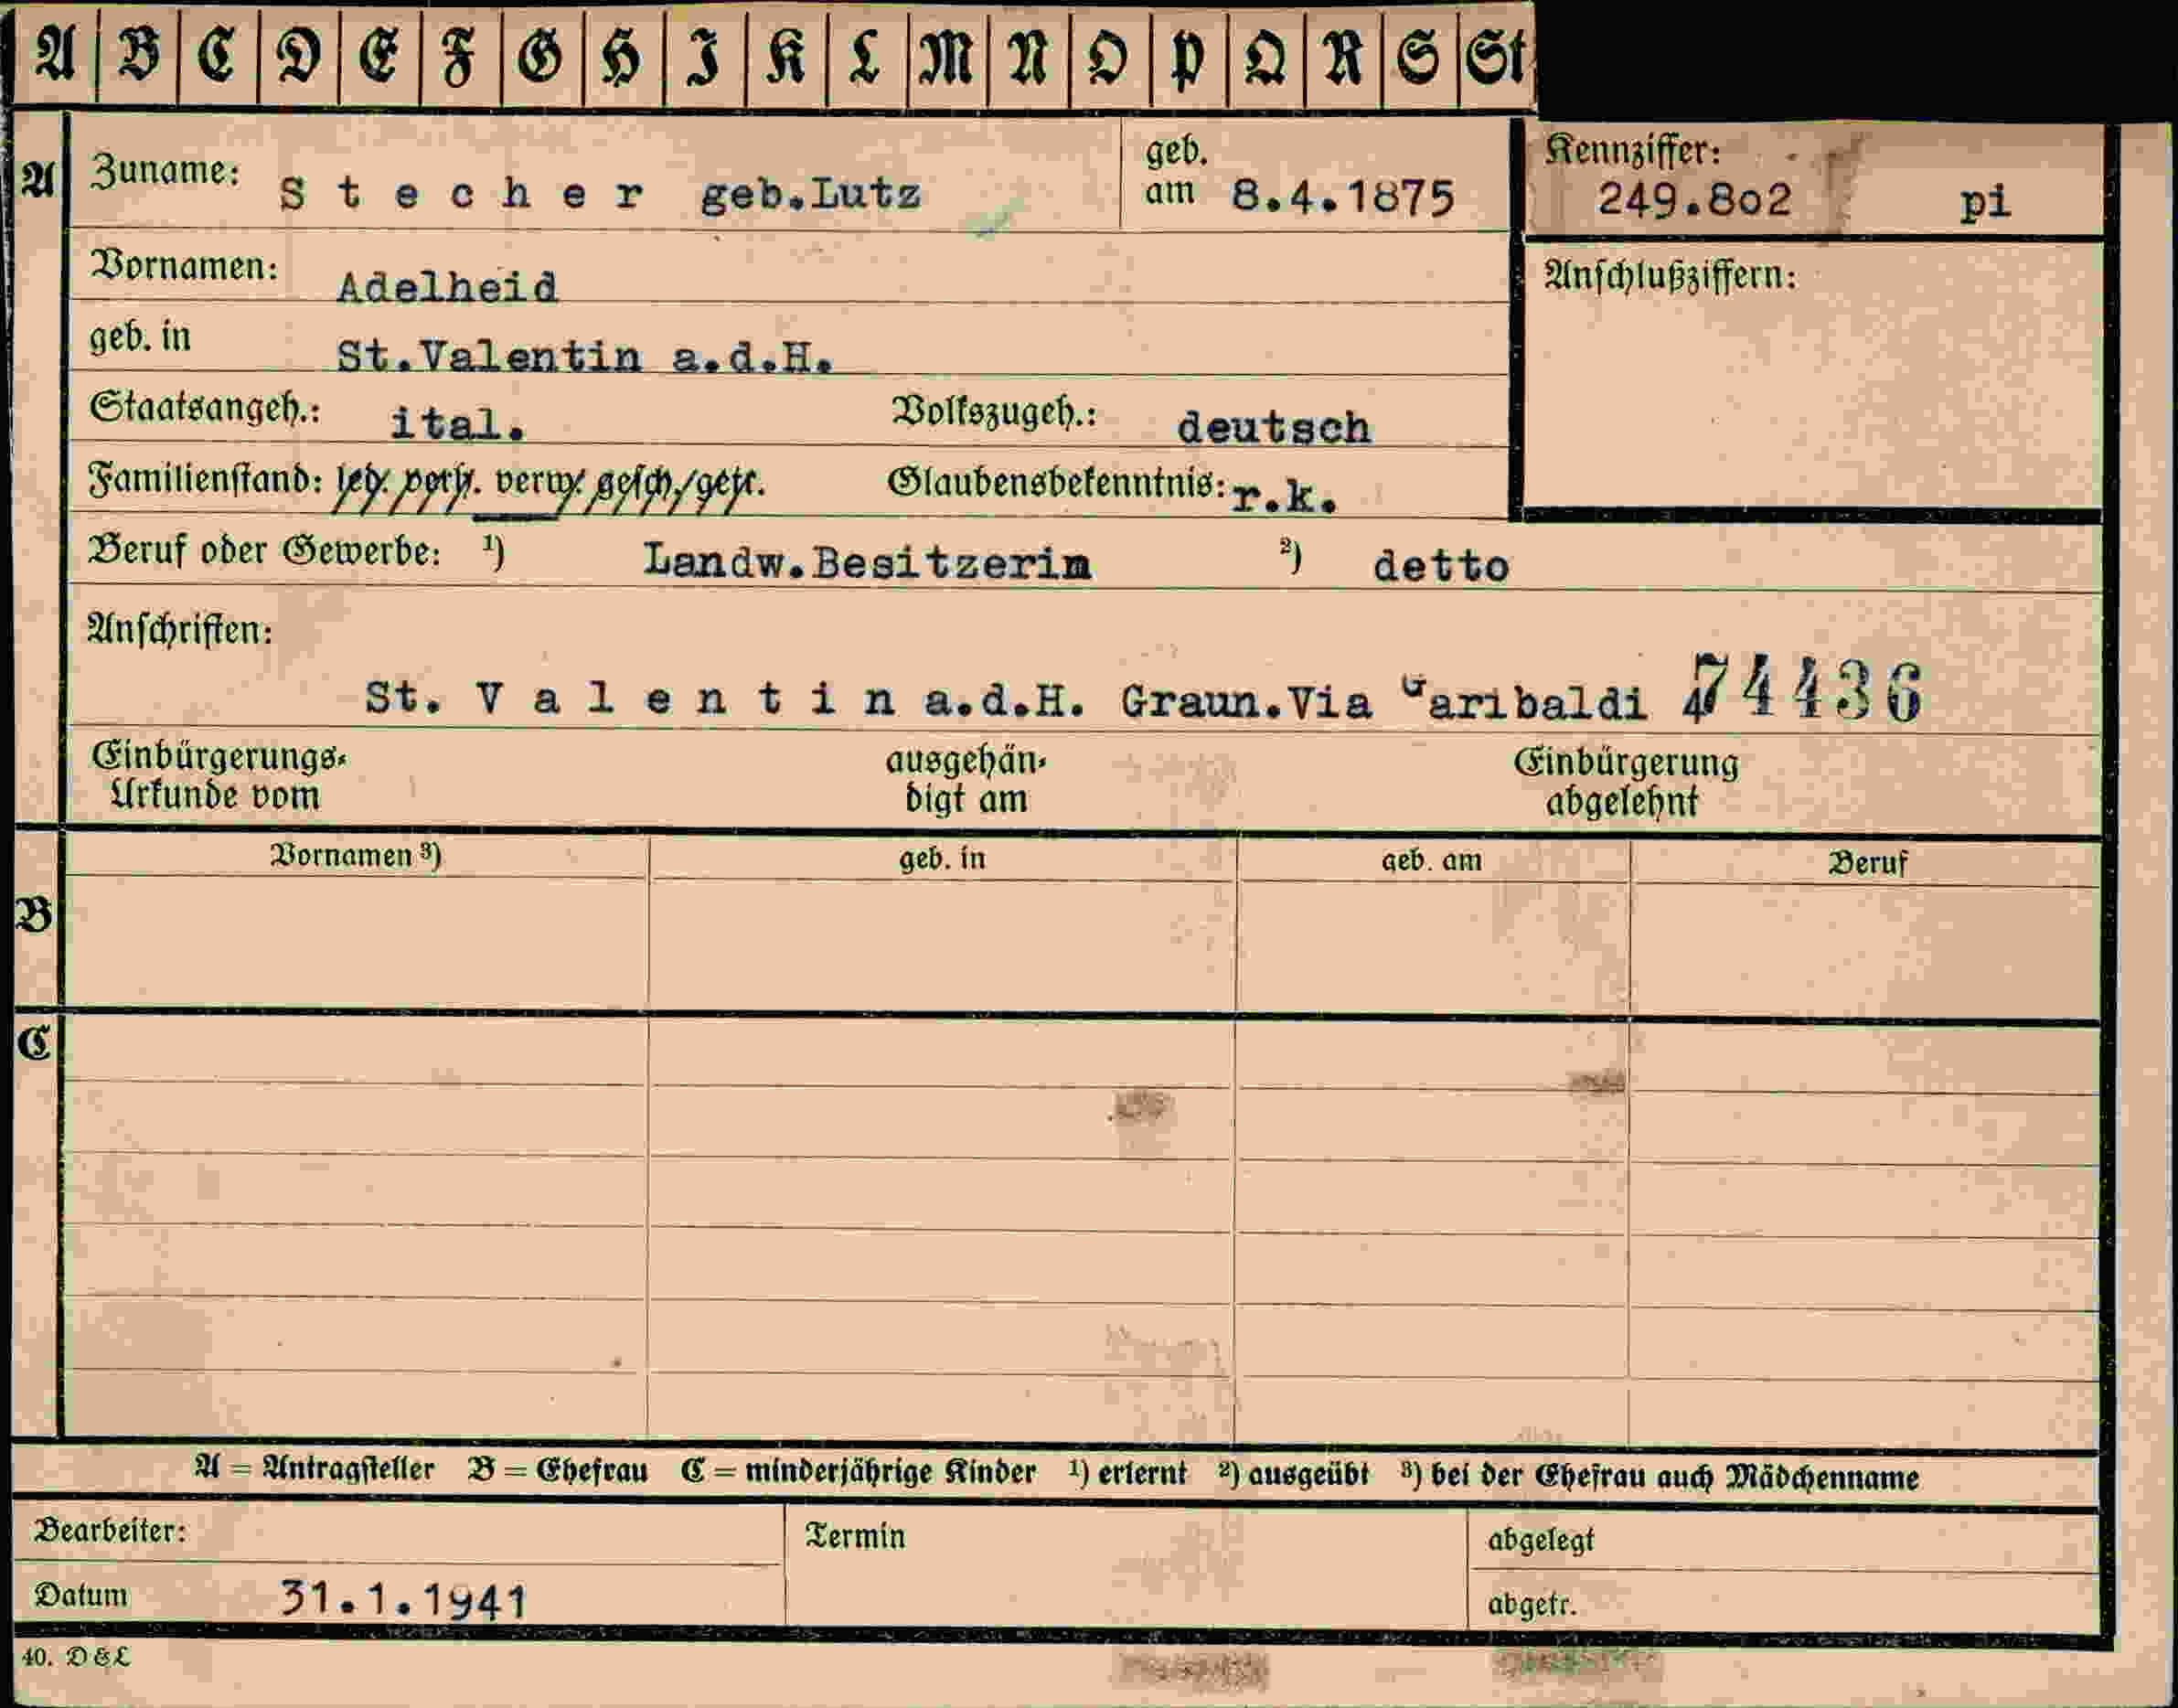 A B C D E F G H I K L M N O P Q R S St
A Zuname: S t e c h e r geb.Lutz geb. am 8.4.1875 Kennziffer: 249.8o2 pi
Vornamen: Adelheid Anschlußziffern:
geb. in St.Valentin a.d.H.
Staatsangeh.: ital. Volkszugeh.: deutsch
Familienstand: led. verh. verw. gesch./getr. Glaubensbekenntnis: r.k.
Beruf oder Gewerbe: ¹) Landw.Besitzerin ²) detto
Anschriften:
St. V a l e n t i n a.d.H. Graun.Via Garibaldi 74436
Einbürgerungs- ausgehän- Einbürgerung
Urkunde vom digt am abgelehnt
Vornamen ³) geb. in geb. am Beruf
B
C
A = Antragsteller B = Ehefrau C = minderjährige Kinder ¹) erlernt ²) ausgeübt ³) bei der Ehefrau auch Mädchenname
Bearbeiter: Termin abgelegt
Datum 31.1.1941 abgetr.
40. D & L